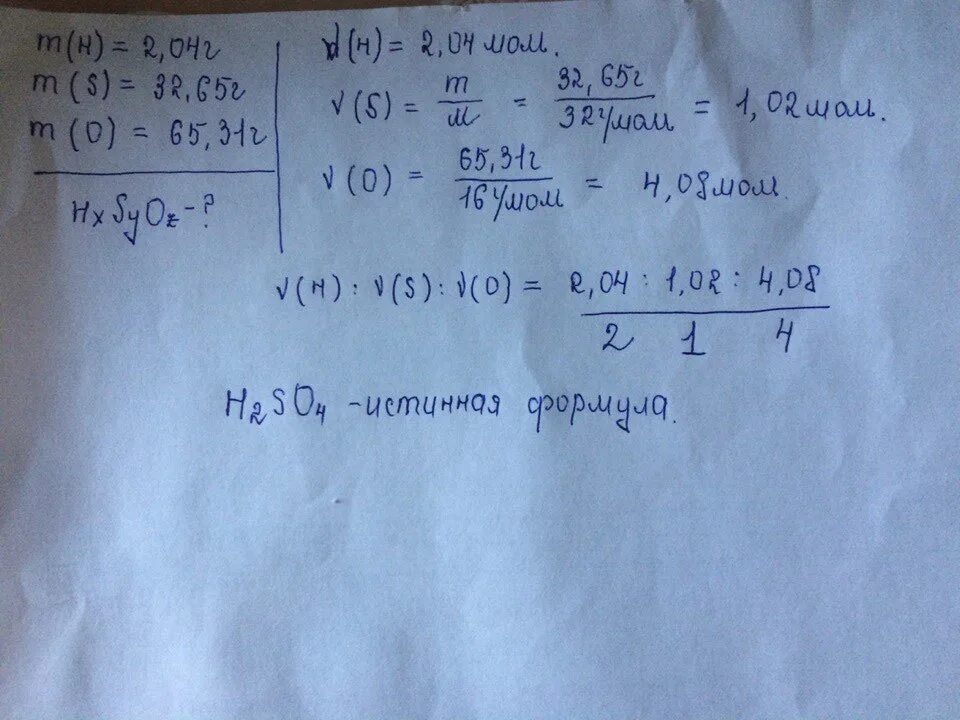 m(H) = 2,04г
m(S) = 32,65г
m(O) = 65,31г
HxSyOz - ?
ν(H) = 2,04 мом.
ν(S) = m/M = 32,65г/32г/мом = 1,02 мом.
ν(O) = 65,31г/16г/мом = 4,08 мом.
ν(H) : ν(S) : ν(O) = 2,04 : 1,02 : 4,08
2 1 4
H₂SO₄ - истинная формула.